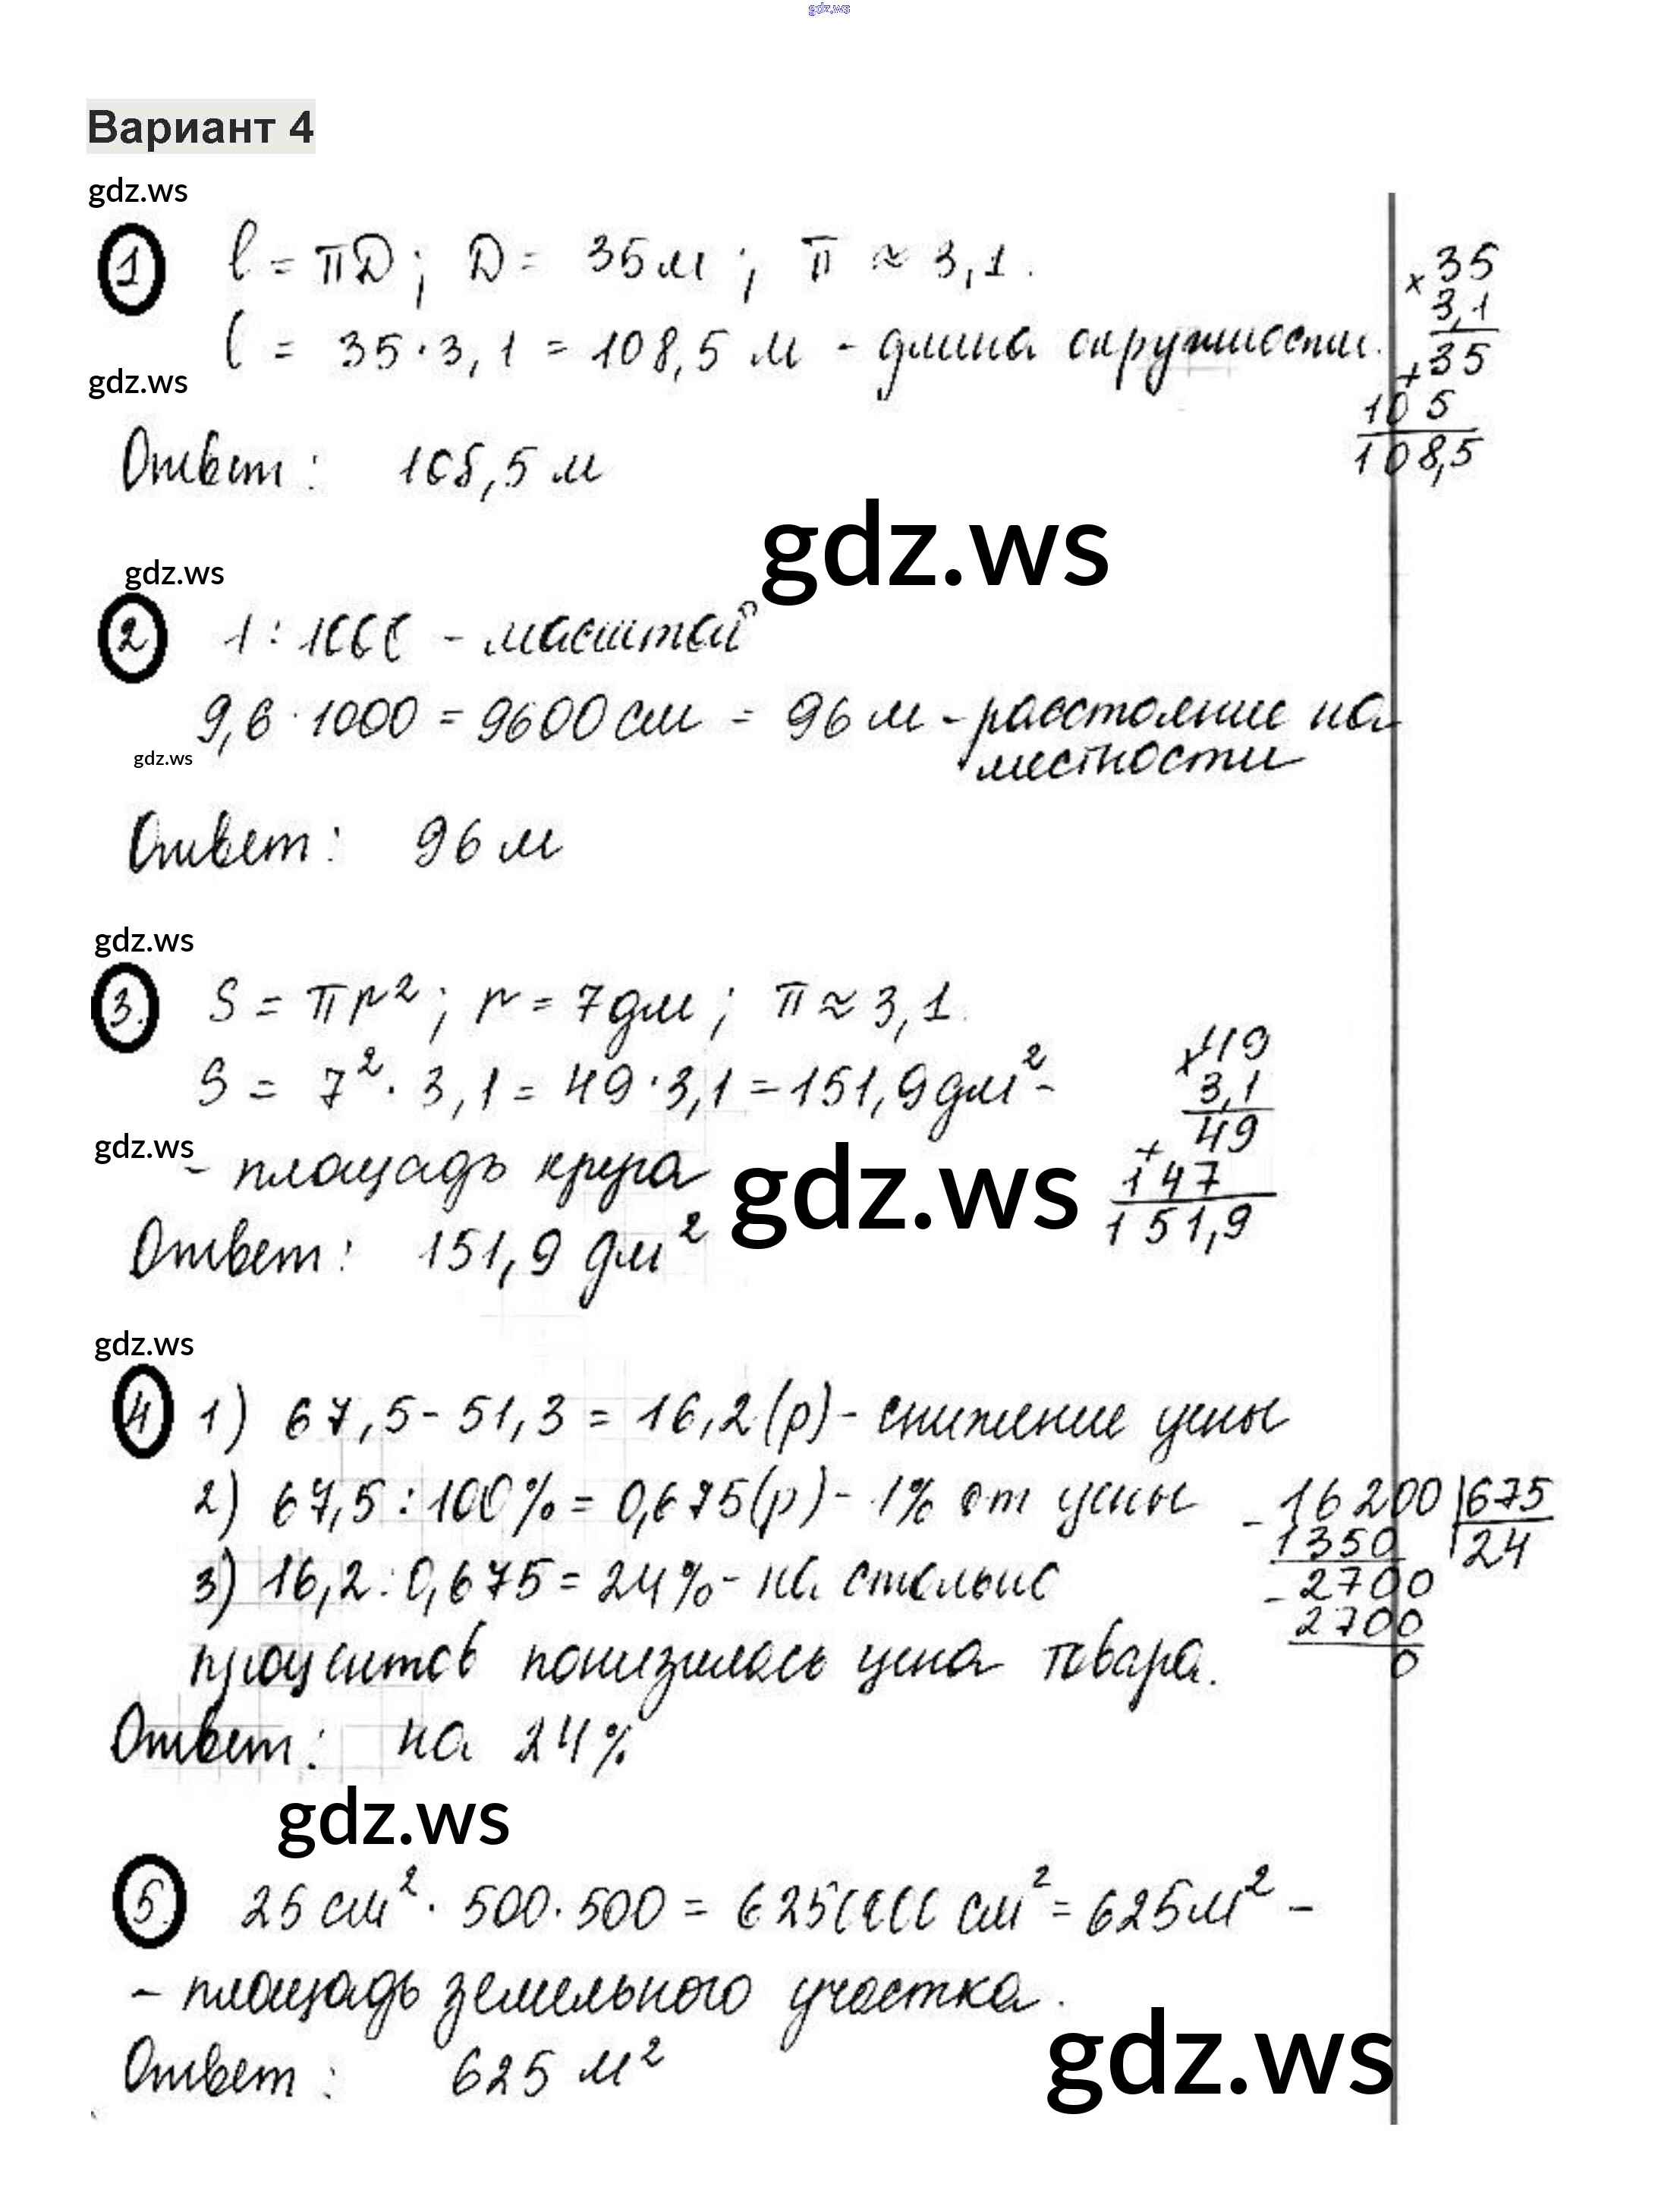 gdz.ws
Вариант 4
gdz.ws
1 l = πD; D = 35м; π ≈ 3,1.
l = 35·3,1 = 108,5 м - длина окружности.
×35
3,1
+35
105
108,5
gdz.ws
Ответ: 108,5 м
gdz.ws
gdz.ws
2 1:1000 - масштаб
9,6·1000 = 9600см = 96 м - расстояние на
местности
gdz.ws
Ответ: 96 м
gdz.ws
3. S = πr²; r = 7дм; π ≈ 3,1.
S = 7²·3,1 = 49·3,1 = 151,9дм² -
×49
3,1
+49
147
151,9
gdz.ws
- площадь круга
gdz.ws
Ответ: 151,9 дм²
gdz.ws
4 1) 67,5 - 51,3 = 16,2(р) - снижение цены
2) 67,5:100% = 0,675(р) - 1% от цены
3) 16,2:0,675 = 24% - на столько
процентов понизилась цена товара.
-16200|675
1350|24
-2700
2700
0
Ответ: на 24%
gdz.ws
5. 25 см²·500·500 = 6250000 см² = 625м² -
- площадь земельного участка.
gdz.ws
Ответ: 625 м²